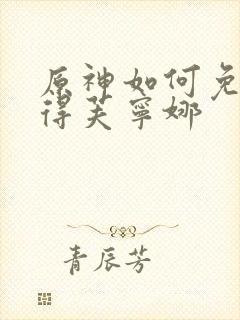 原神如何免
得芙寧娜
青辰芳